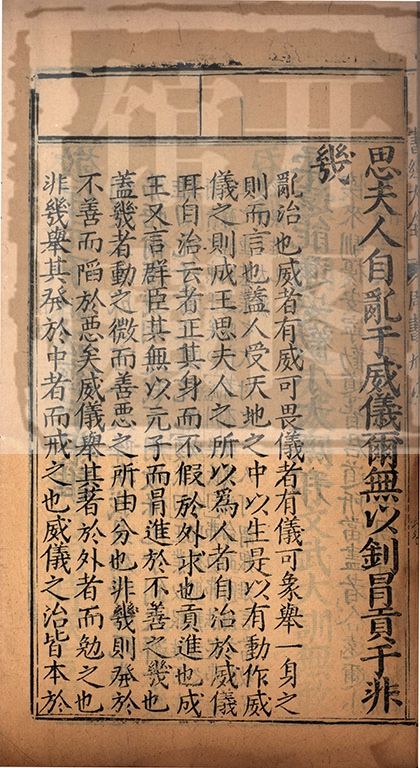 思夫人自亂于威儀爾無以釗冒貢于非
幾
亂治也威者有威可畏儀者有儀可象舉一身之
則而言也蓋人受天地之中以生是以有動作威
儀之則成王思夫人之所以為人者自治於威儀
耳自治云者正其身而不假於外求也貢進也成
王又言群臣其無以元子而冒進於不善之幾也
蓋幾者動之微而善惡之所由分也非幾則發於
不善而陷於惡矣威儀舉其著於外者而勉之也
非幾舉其發於中者而戒之也威儀之治皆本於